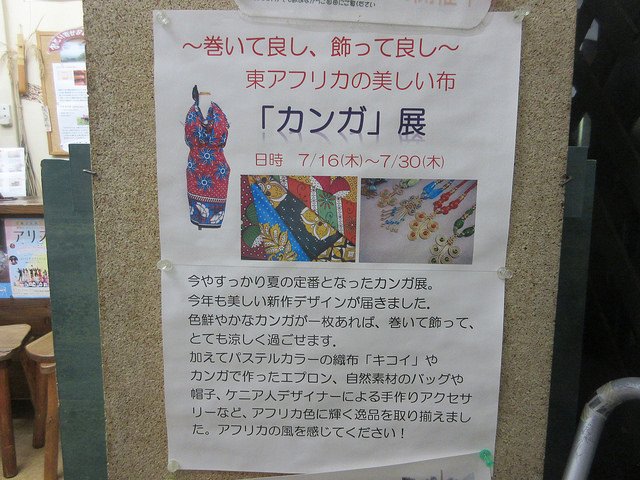 ～巻いて良し、飾って良し～
東アフリカの美しい布
「カンガ」展
日時 7/16(木)～7/30(木)
今やすっかり夏の定番となったカンガ展。
今年も美しい新作デザインが届きました。
色鮮やかなカンガが一枚あれば、巻いて飾って、
とても涼しく過ごせます。
加えてパステルカラーの織布「キコイ」や
カンガで作ったエプロン、自然素材のバッグや
帽子、ケニア人デザイナーによる手作りアクセサ
リーなど、アフリカ色に輝く逸品を取り揃えまし
た。アフリカの風を感じてください！
アリス